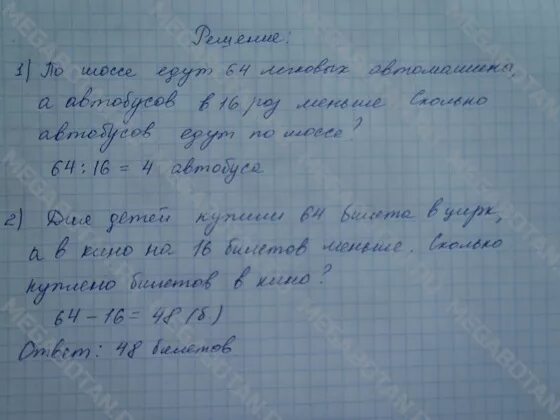 Решение:
1) По шоссе едут 64 легковых автомашины,
а автобусов в 16 раз меньше. Сколько
автобусов едут по шоссе?
64 : 16 = 4 автобуса
2) Для детей купили 64 билета в цирк,
а в кино на 16 билетов меньше. Сколько
куплено билетов в кино?
64 - 16 = 48 (б.)
Ответ: 48 билетов
MEGABOTAN.RU